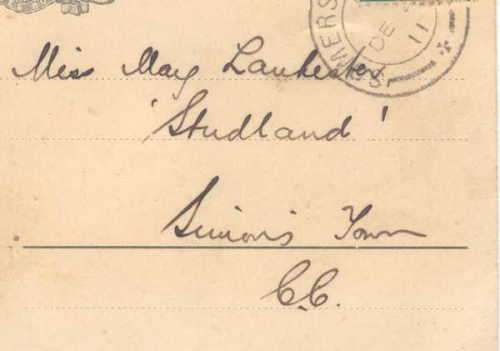 Miss May Lankester
'Studland'
Simon's Town
C.C.
MERS
DE
11
S